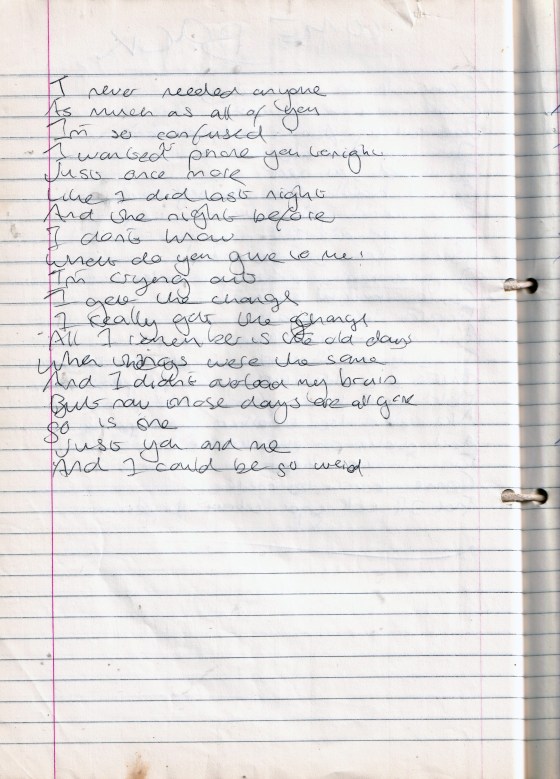 I never needed anyone
As much as all of you
I'm so confused
I wanted to phone you tonight
Just once more
Like I did last night
And the night before
I don't know
What do you give to me!
I'm crying out
I get the change
I really get the change
All I remember is the old days
When things were the same
And I didn't overload my brain
But now those days are all gone
So is she
Just you and me
And I could be so weird